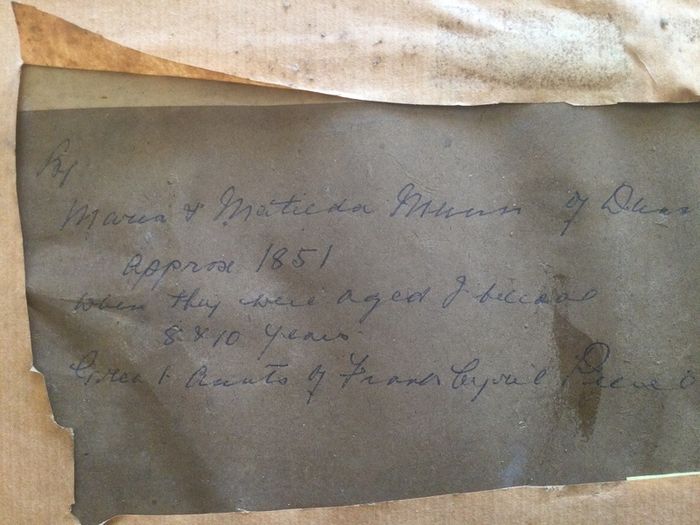 By
Maria & Matilda Munn of
approx 1851
when they were aged I believe
8 & 10 years
Great Aunts of Frank Cyril